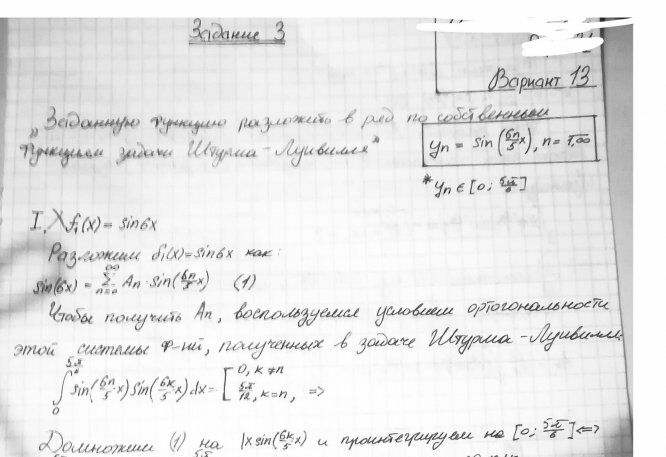 Задание 3
Вариант 13
„Заданную функцию разложить в ряд по собственным
функциям задачи Штурма-Лиувилля"
yn = sin(6n/5 x), n = 1,∞
*yn ∈ [0; 5π/6]
I. f₁(x) = sin6x
Разложим f₁(x)=sin6x как:
sin(6x) = ∞ Σ n=0 An·sin(6n/5 x) (1)
Чтобы получить An, воспользуемся условием ортогональности
этой системы ф-ий, полученных в задаче Штурма-Лиувилля:
∫ 0 5π/6 sin(6n/5 x) sin(6k/5 x) dx = [ 0, k≠n
5π/12, k=n, =>
Домножим (1) на |x sin(6k/5 x) и проинтегрируем на [0; 5π/6] <=>